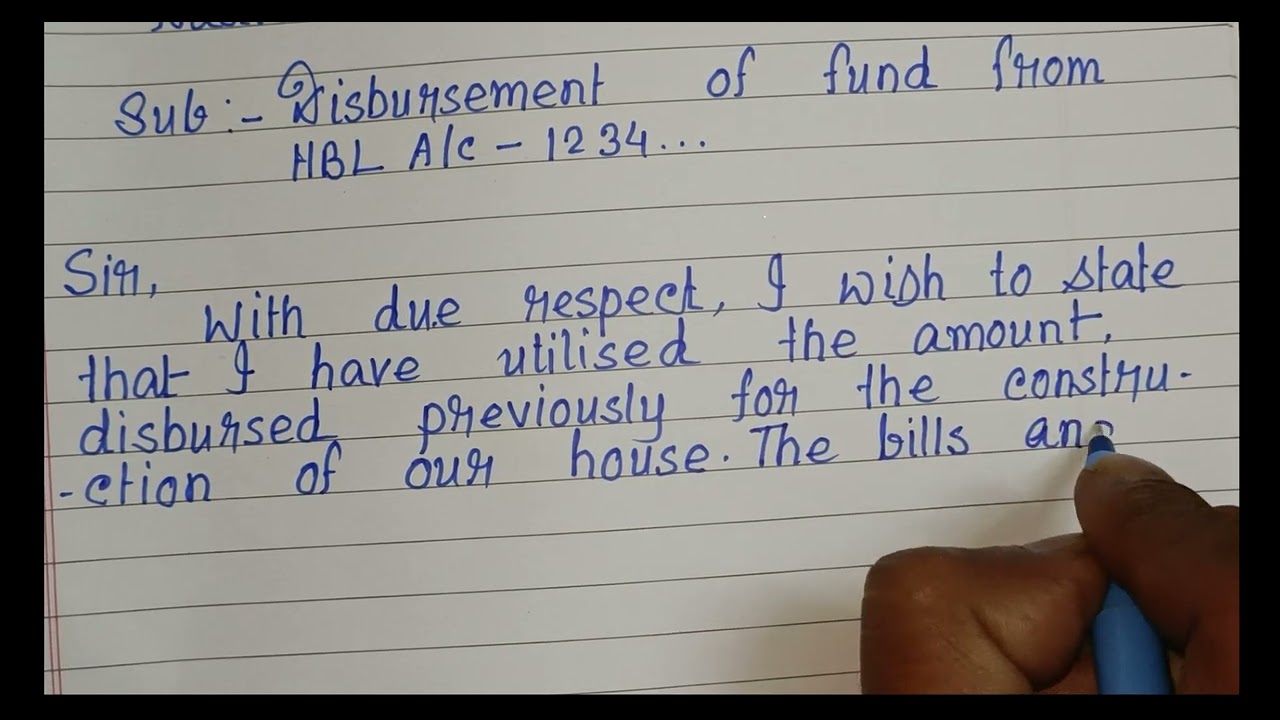 Sub:- Disbursement of fund from
HBL A/c - 1234...
Sir,
With due respect, I wish to state
that I have utilised the amount,
disbursed previously for the constru-
-ction of our house. The bills an